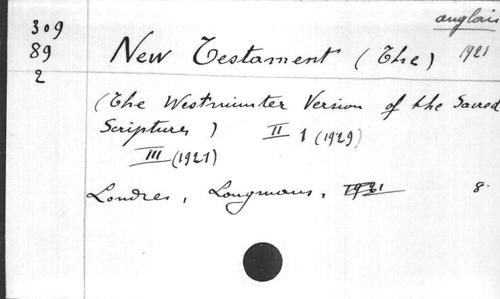 anglais
309
89
2
New Testament (The) 1921
(The Westminster Version of the Sacred
Scriptures) II 1 (1929)
III (1921)
Londres, Longmans, 1921 8.